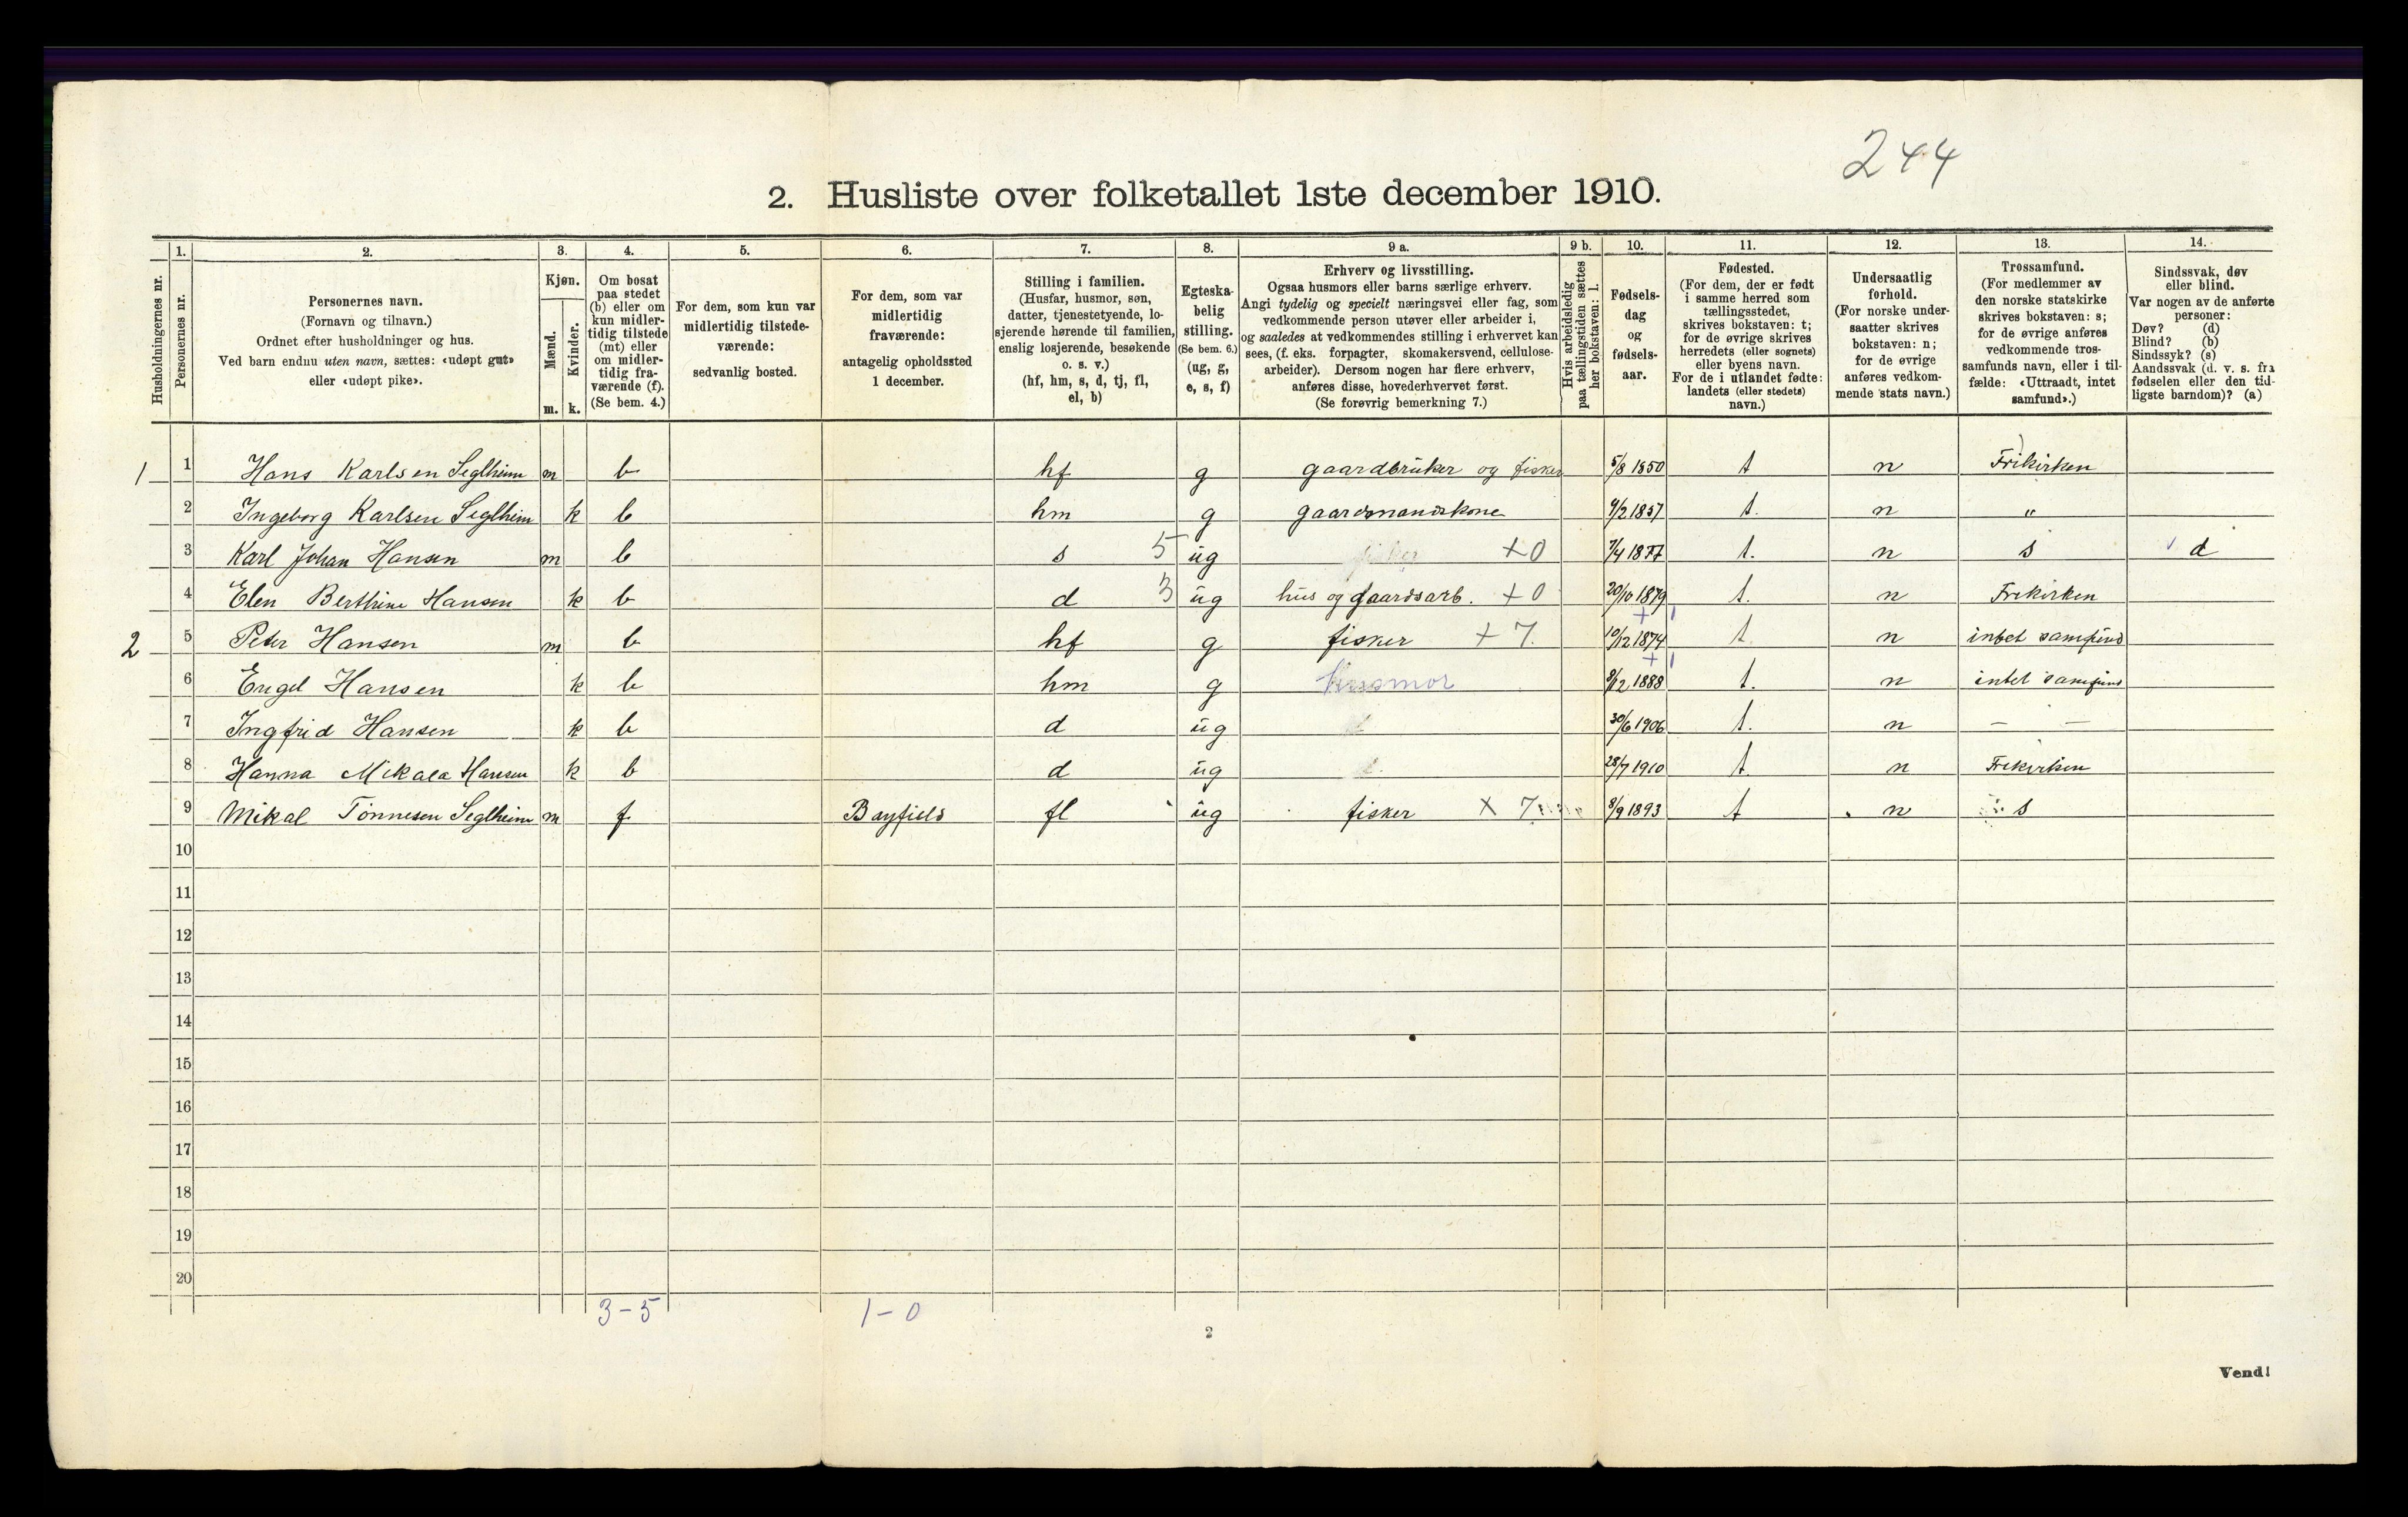 244
2. Husliste over folketallet 1ste december 1910.
Husholdningernes nr.
1.
Personernes nr.
2.
Personernes navn.
(Fornavn og tilnavn.)
Ordnet efter husholdninger og hus.
Ved barn endnu uten navn, sættes: «udøpt gut»
eller «udøpt pike».
3.
Kjøn.
Mænd.
Kvinder.
m. k.
4.
Om bosat
paa stedet
(b) eller om
kun midler-
tidig tilstede
(mt) eller
om midler-
tidig fra-
værende (f).
(Se bem. 4.)
5.
For dem, som kun var
midlertidig tilstede-
værende:
sedvanlig bosted.
6.
For dem, som var
midlertidig
fraværende:
antagelig opholdssted
1 december.
7.
Stilling i familien.
(Husfar, husmor, søn,
datter, tjenestetyende, lo-
sjerende hørende til familien,
enslig losjerende, besøkende
o. s. v.)
(hf, hm, s, d, tj, fl,
el, b)
8.
Egteska-
belig
stilling.
(Se bem. 6.)
(ug, g,
e, s, f)
9 a.
Erhverv og livsstilling.
Ogsaa husmors eller barns særlige erhverv.
Angi tydelig og specielt næringsvei eller fag, som
vedkommende person utøver eller arbeider i,
og saaledes at vedkommendes stilling i erhvervet kan
sees, (f. eks. forpagter, skomakersvend, cellulose-
arbeider). Dersom nogen har flere erhverv,
anføres disse, hovederhvervet først.
(Se forøvrig bemerkning 7.)
9 b.
Hvis arbeidsledig
paa tællingstiden sættes
her bokstaven: l.
10.
Fødsels-
dag
og
fødsels-
aar.
11.
Fødested.
(For dem, der er født
i samme herred som
tællingsstedet,
skrives bokstaven: t;
for de øvrige skrives
herredets (eller sognets)
eller byens navn.
For de i utlandet fødte:
landets (eller stedets)
navn.)
12.
Undersaatlig
forhold.
(For norske under-
saatter skrives
bokstaven: n;
for de øvrige
anføres vedkom-
mende stats navn.)
13.
Trossamfund.
(For medlemmer av
den norske statskirke
skrives bokstaven: s;
for de øvrige anføres
vedkommende tros-
samfunds navn, eller i til-
fælde: «Uttraadt, intet
samfund».)
14.
Sindssvak, døv
eller blind.
Var nogen av de anførte
personer:
Døv? (d)
Blind? (b)
Sindssyk? (s)
Aandssvak (d. v. s. fra
fødselen eller den tid-
ligste barndom)? (a)
1 1 Hans Karlsen Seglheim m b hf g gaardbruker og fisker 5/8 1850 t n Frikirken
2 Ingeborg Karlsen Seglheim k b hm g gaardmandskone 4/2 1857 t. n "
3 Karl Johan Hansen m b s 5 ug fisker +0 7/4 1877 t. n s d
4 Elen Berthine Hansen k b d 3 ug hus og gaardsarb. +0 20/10 1879 t. n Frikirken
2 5 Peter Hansen m b hf g fisker +7. 10/12 1874 t n intet samfund
6 Engel Hansen k b hm g husmor 9/2 1888 t. n intet samfund
7 Ingfrid Hansen k b d ug 30/6 1906 t. n — —
8 Hanna Mikala Hansen k b d ug 28/7 1910 t n Frikirken
9 Mikal Tonnesen Seglheim m f Bayfield fl ug fisker x 7 8/9 1893 t n s
10
11
12
13
14
15
16
17
18
19
20
3-5 1-0
2
Vend!